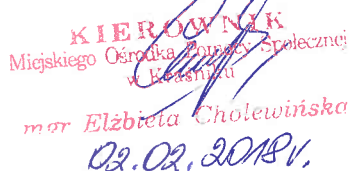 KIEROWNIK
Miejskiego Ośrodka Pomocy Społecznej
w Kraśniku
mgr Elżbieta Cholewińska
02.02.2018r.